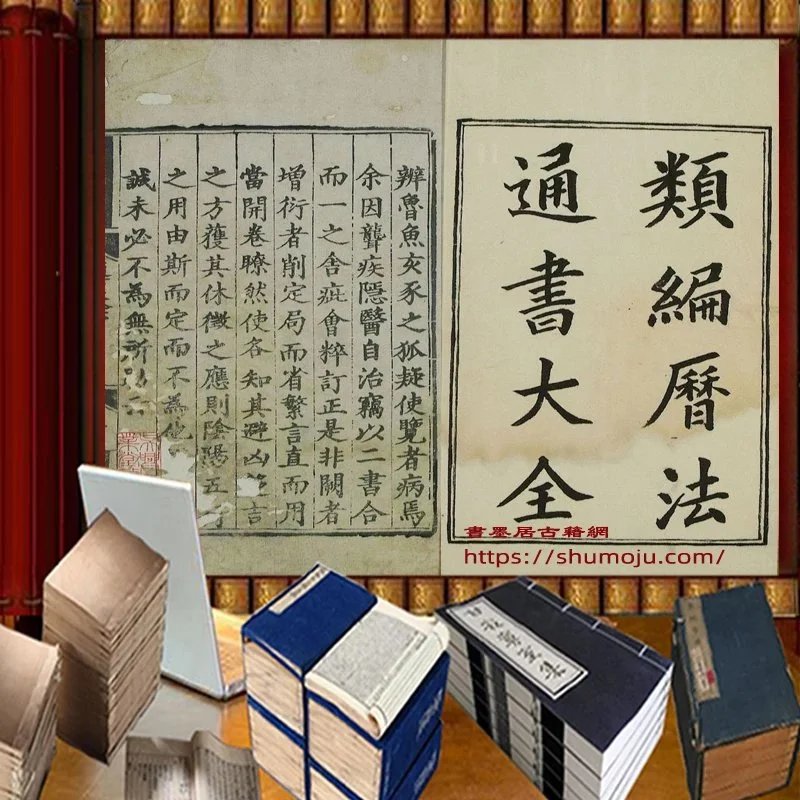 類編曆法
通書大全
辨魯魚亥豕之狐疑使覽者病焉
余因聾疾隱醫自治竊以二書合
而一之舍疵會粹訂正是非闕者
增衍者削定局而省繁言直而用
當開卷瞭然使各知其避凶
言
之方獲其休徵之應則陰陽五
之用由斯而定而不為
誠未必不為無所
書墨居古籍網
https://shumoju.com/